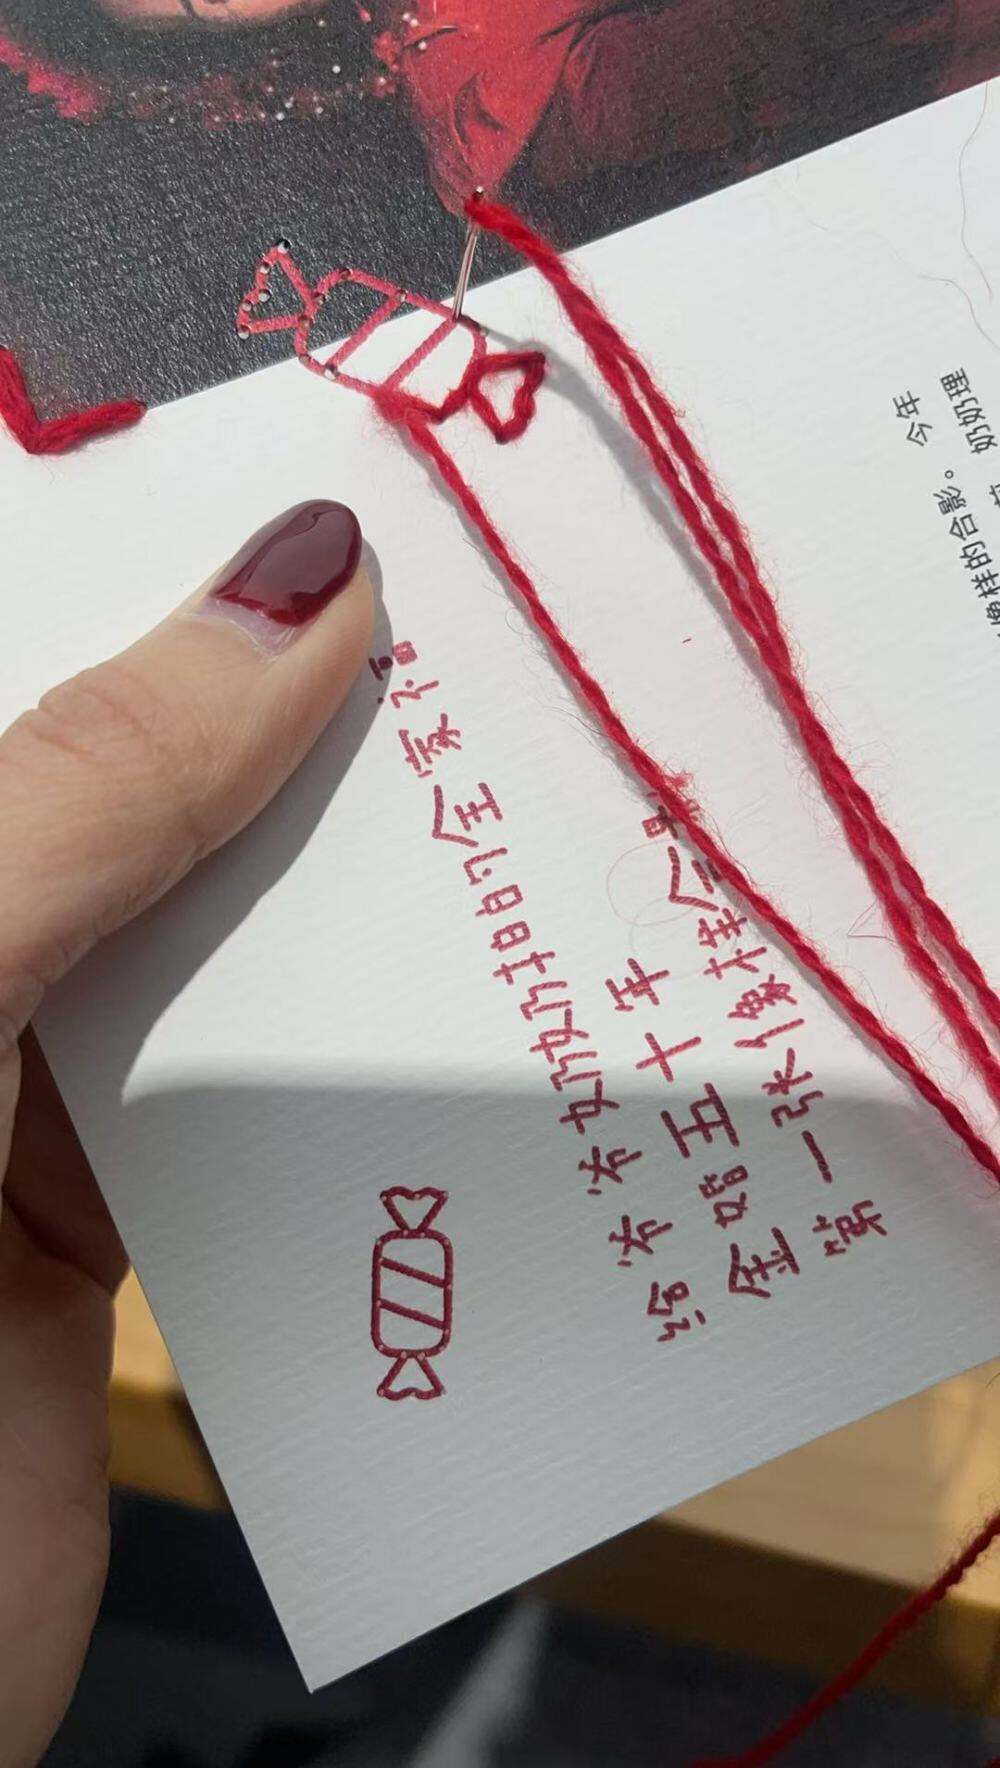 给爷爷奶奶拍的全家福
金婚五十年
第一张像样合影
样的合影。今年
奶奶理